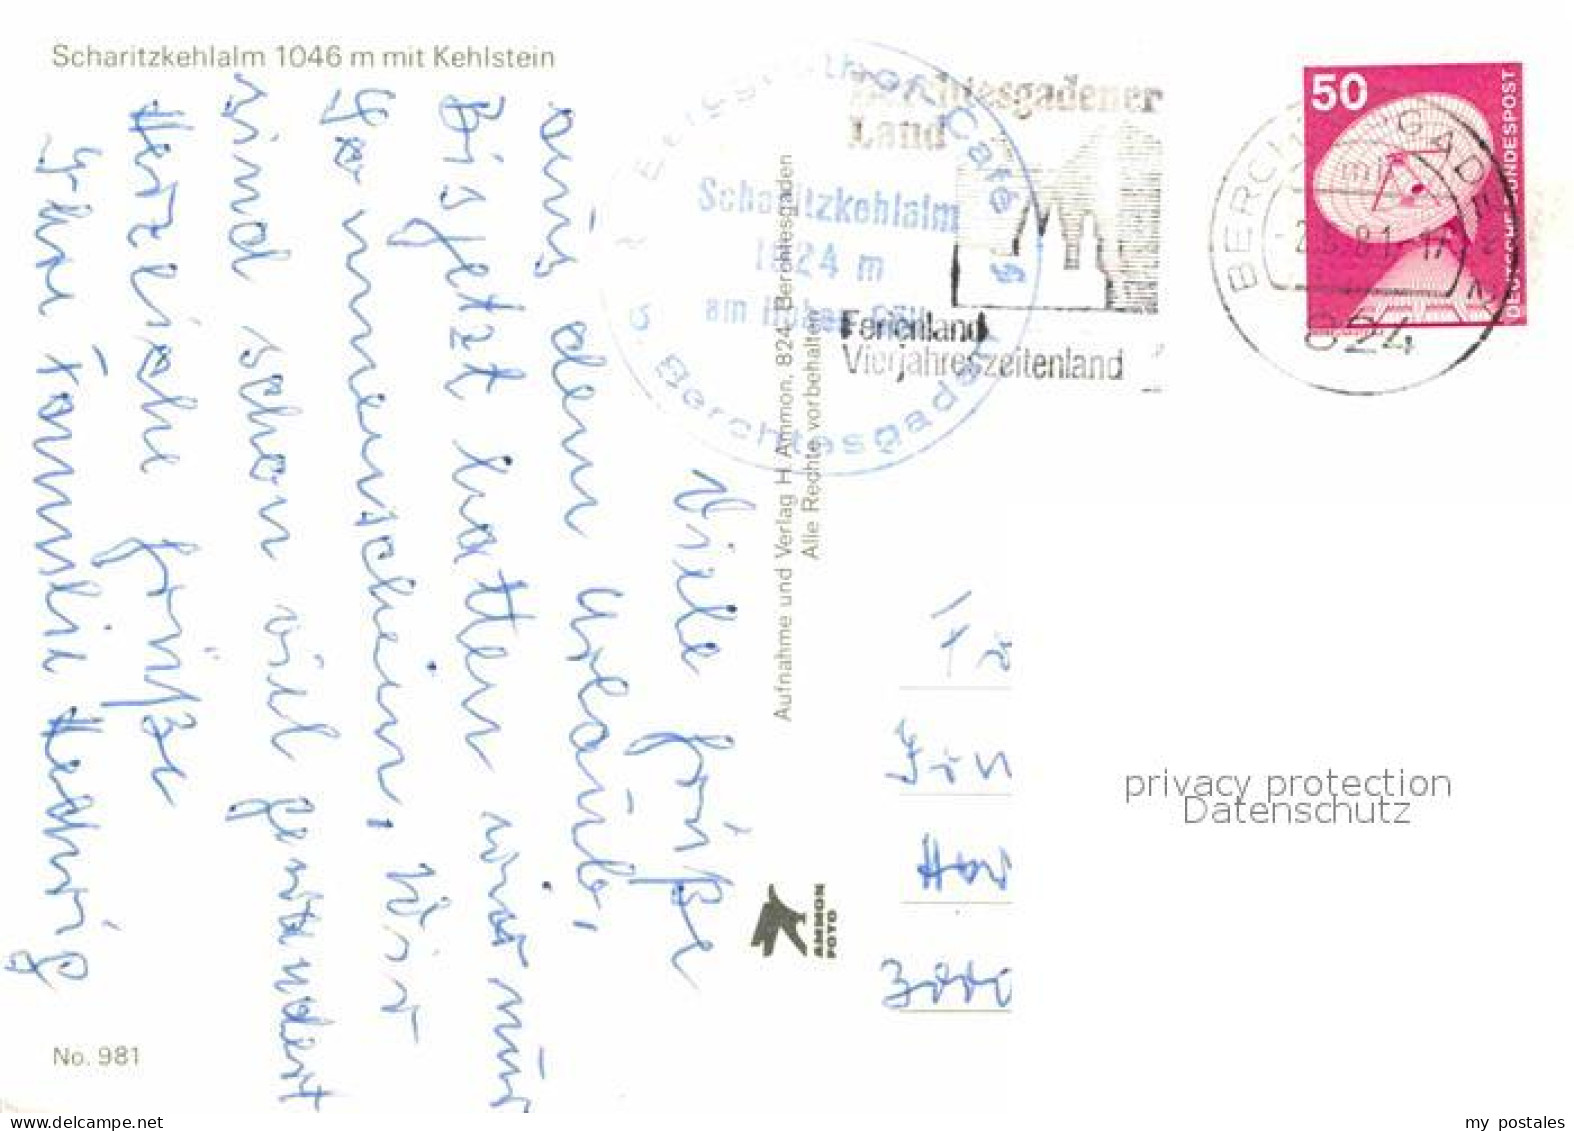 Scharitzkehlalm 1046 m mit Kehlstein
Viele Grüße
aus dem Urlaub,
Bis jetzt hatten wir nur
Sonnenschein, Wir
sind schon viel gewandert
Herzliche Grüße
Familie Hedwig
No. 981
Aufnahme und Verlag H. Ammon, 824 Berchtesgaden
Alle Rechte vorbehalten
AMMON
FOTO
Café
Scharitzkehlalm
1024 m
am Hohen Göll
Berchtesgaden
Berchtesgadener
Land
Ferienland
Vierjahreszeitenland
BERCHTESGADEN 2
824
50
DEUTSCHE BUNDESPOST
3000
privacy protection
Datenschutz
www.delcampe.net
my_postales